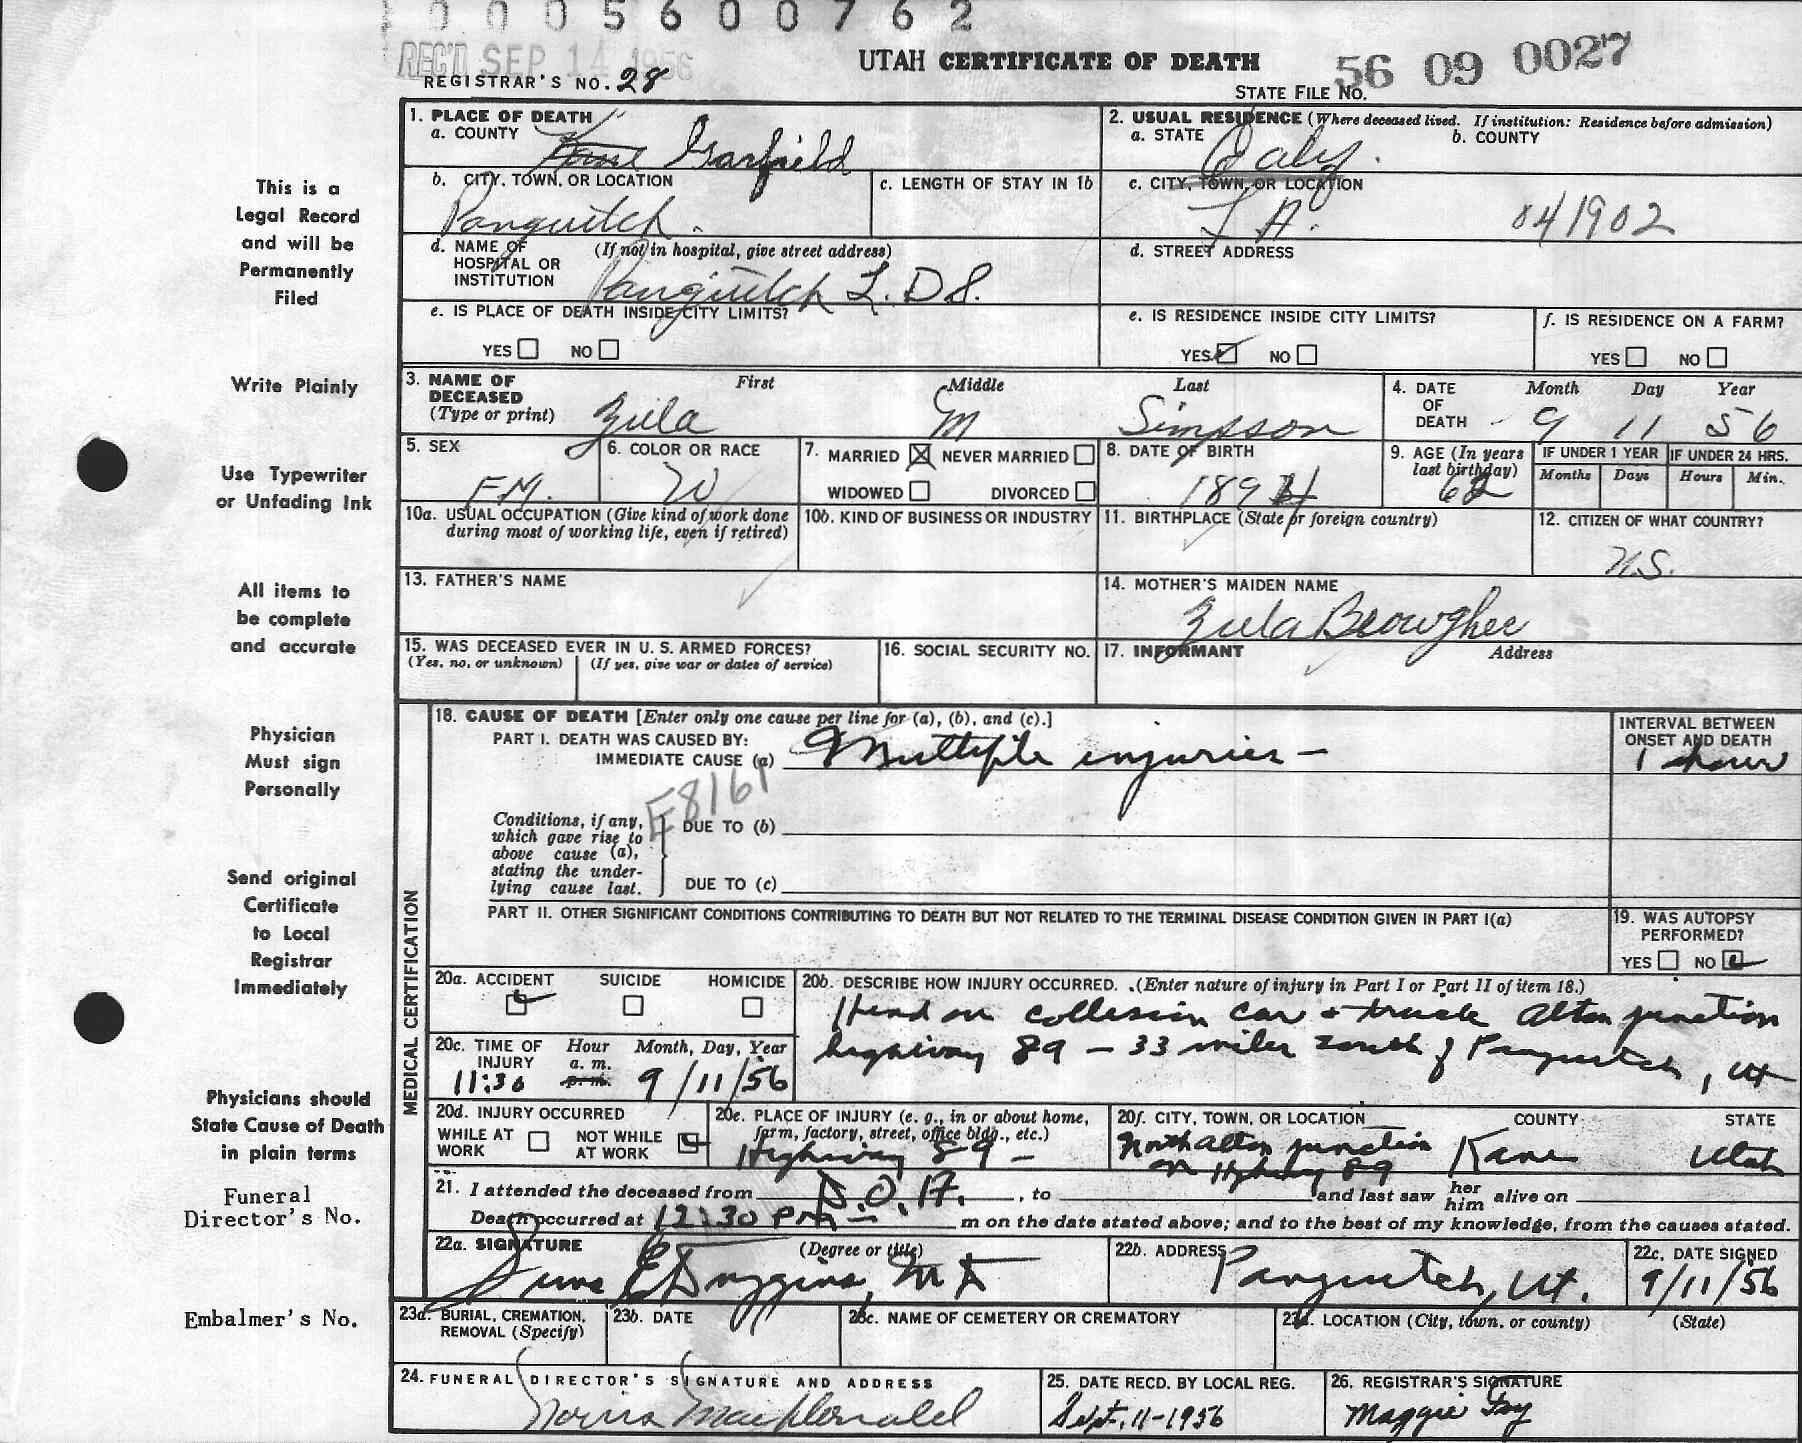 0005600762
REC'D SEP 14 1956
UTAH CERTIFICATE OF DEATH
56 09 0027
REGISTRAR'S NO. 28
STATE FILE NO.
1. PLACE OF DEATH
a. COUNTY
Kane Garfield
2. USUAL RESIDENCE (Where deceased lived. If institution: Residence before admission)
a. STATE
b. COUNTY
b. CITY, TOWN, OR LOCATION
Panguitch.
c. LENGTH OF STAY IN 1b
c. CITY, TOWN, OR LOCATION
L A.
041902
d. NAME OF HOSPITAL OR INSTITUTION
(If not in hospital, give street address)
Panguitch L. D S.
d. STREET ADDRESS
e. IS PLACE OF DEATH INSIDE CITY LIMITS?
YES NO
e. IS RESIDENCE INSIDE CITY LIMITS?
YES NO
f. IS RESIDENCE ON A FARM?
YES NO
3. NAME OF DECEASED
(Type or print)
First Middle Last
Zula M Simpson
4. DATE OF DEATH
Month Day Year
9 11 56
5. SEX
FM.
6. COLOR OR RACE
W
7. MARRIED NEVER MARRIED
WIDOWED DIVORCED
8. DATE OF BIRTH
1894
9. AGE (In years last birthday)
62
IF UNDER 1 YEAR
Months Days
IF UNDER 24 HRS.
Hours Min.
10a. USUAL OCCUPATION (Give kind of work done during most of working life, even if retired)
10b. KIND OF BUSINESS OR INDUSTRY
11. BIRTHPLACE (State or foreign country)
12. CITIZEN OF WHAT COUNTRY?
U.S.
13. FATHER'S NAME
14. MOTHER'S MAIDEN NAME
Zula Browgher
15. WAS DECEASED EVER IN U. S. ARMED FORCES?
(Yes, no, or unknown) (If yes, give war or dates of service)
16. SOCIAL SECURITY NO.
17. INFORMANT Address
MEDICAL CERTIFICATION
18. CAUSE OF DEATH [Enter only one cause per line for (a), (b), and (c).]
PART I. DEATH WAS CAUSED BY:
IMMEDIATE CAUSE (a) Multiple injuries -
INTERVAL BETWEEN ONSET AND DEATH
1 hour
E8161
Conditions, if any, which gave rise to above cause (a), stating the underlying cause last.
DUE TO (b)
DUE TO (c)
PART II. OTHER SIGNIFICANT CONDITIONS CONTRIBUTING TO DEATH BUT NOT RELATED TO THE TERMINAL DISEASE CONDITION GIVEN IN PART I(a)
19. WAS AUTOPSY PERFORMED?
YES NO
20a. ACCIDENT SUICIDE HOMICIDE
20b. DESCRIBE HOW INJURY OCCURRED. (Enter nature of injury in Part I or Part II of item 18.)
Head on collision car & truck Alton junction
highway 89 - 33 miles south of Panguitch, Ut
20c. TIME OF INJURY
Hour a. m. p. m.
Month, Day, Year
11:30 9/11/56
20d. INJURY OCCURRED
WHILE AT WORK NOT WHILE AT WORK
20e. PLACE OF INJURY (e. g., in or about home, farm, factory, street, office bldg., etc.)
Highway 89 -
20f. CITY, TOWN, OR LOCATION COUNTY STATE
North Alton junction Kane Utah
on Highway 89
21. I attended the deceased from D.O.A. , to and last saw her him alive on
Death occurred at 12:30 pm - m on the date stated above; and to the best of my knowledge, from the causes stated.
22a. SIGNATURE (Degree or title)
22b. ADDRESS
Panguitch, Ut.
22c. DATE SIGNED
9/11/56
23a. BURIAL, CREMATION, REMOVAL (Specify)
23b. DATE
23c. NAME OF CEMETERY OR CREMATORY
23d. LOCATION (City, town, or county) (State)
24. FUNERAL DIRECTOR'S SIGNATURE AND ADDRESS
Norris MacDonald
25. DATE RECD. BY LOCAL REG.
Sept. 11-1956
26. REGISTRAR'S SIGNATURE
Maggie Foy
This is a
Legal Record
and will be
Permanently
Filed
Write Plainly
Use Typewriter
or Unfading Ink
All items to
be complete
and accurate
Physician
Must sign
Personally
Send original
Certificate
to Local
Registrar
Immediately
Physicians should
State Cause of Death
in plain terms
Funeral
Director's No.
Embalmer's No.